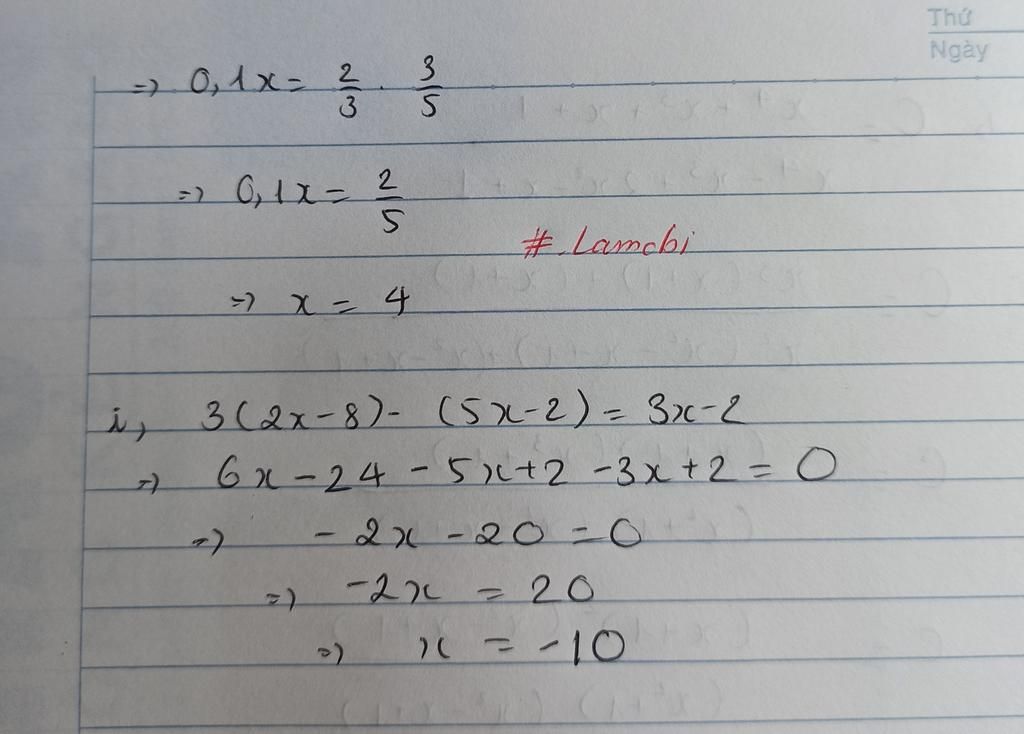 Thứ
Ngày
=> 0,1x = 2/3 . 3/5
=> 0,1x = 2/5
#.Lamchi
=> x = 4
i, 3(2x-8)- (5x-2) = 3x-2
=> 6x - 24 - 5x+2 -3x+2 = 0
=> - 2x - 20 = 0
=> -2x = 20
=> x = -10